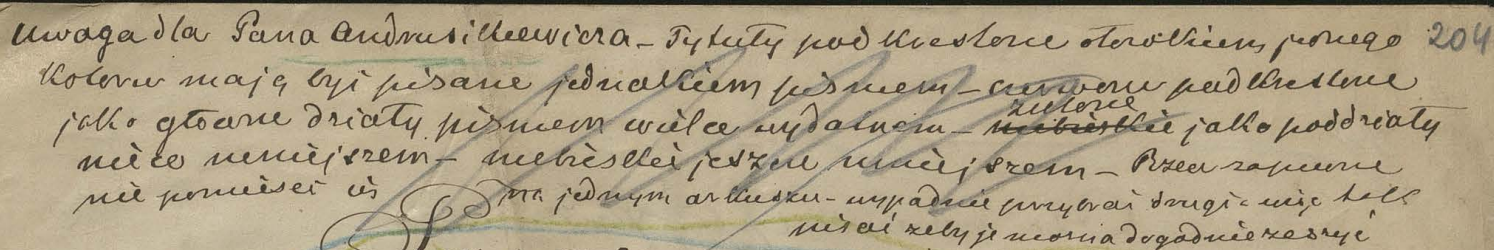 Uwaga dla Pana Andrusikiewicza – Tytuły podkreślone ołówkiem jednego 204
koloru mają być pisane jednakiem pismem – czerwone podkreślone
zielone
jako główne działy pismem wielce wydatnem – niebieskie jako poddziały
nieco mniejszem – niebieskie jeszcze mniejszem – Rzecz zapewne
nie pomieści się na jednym arkuszu – wypadnie przybrać drugi a więc tak
pisać żeby je można dogodnie zeszyć